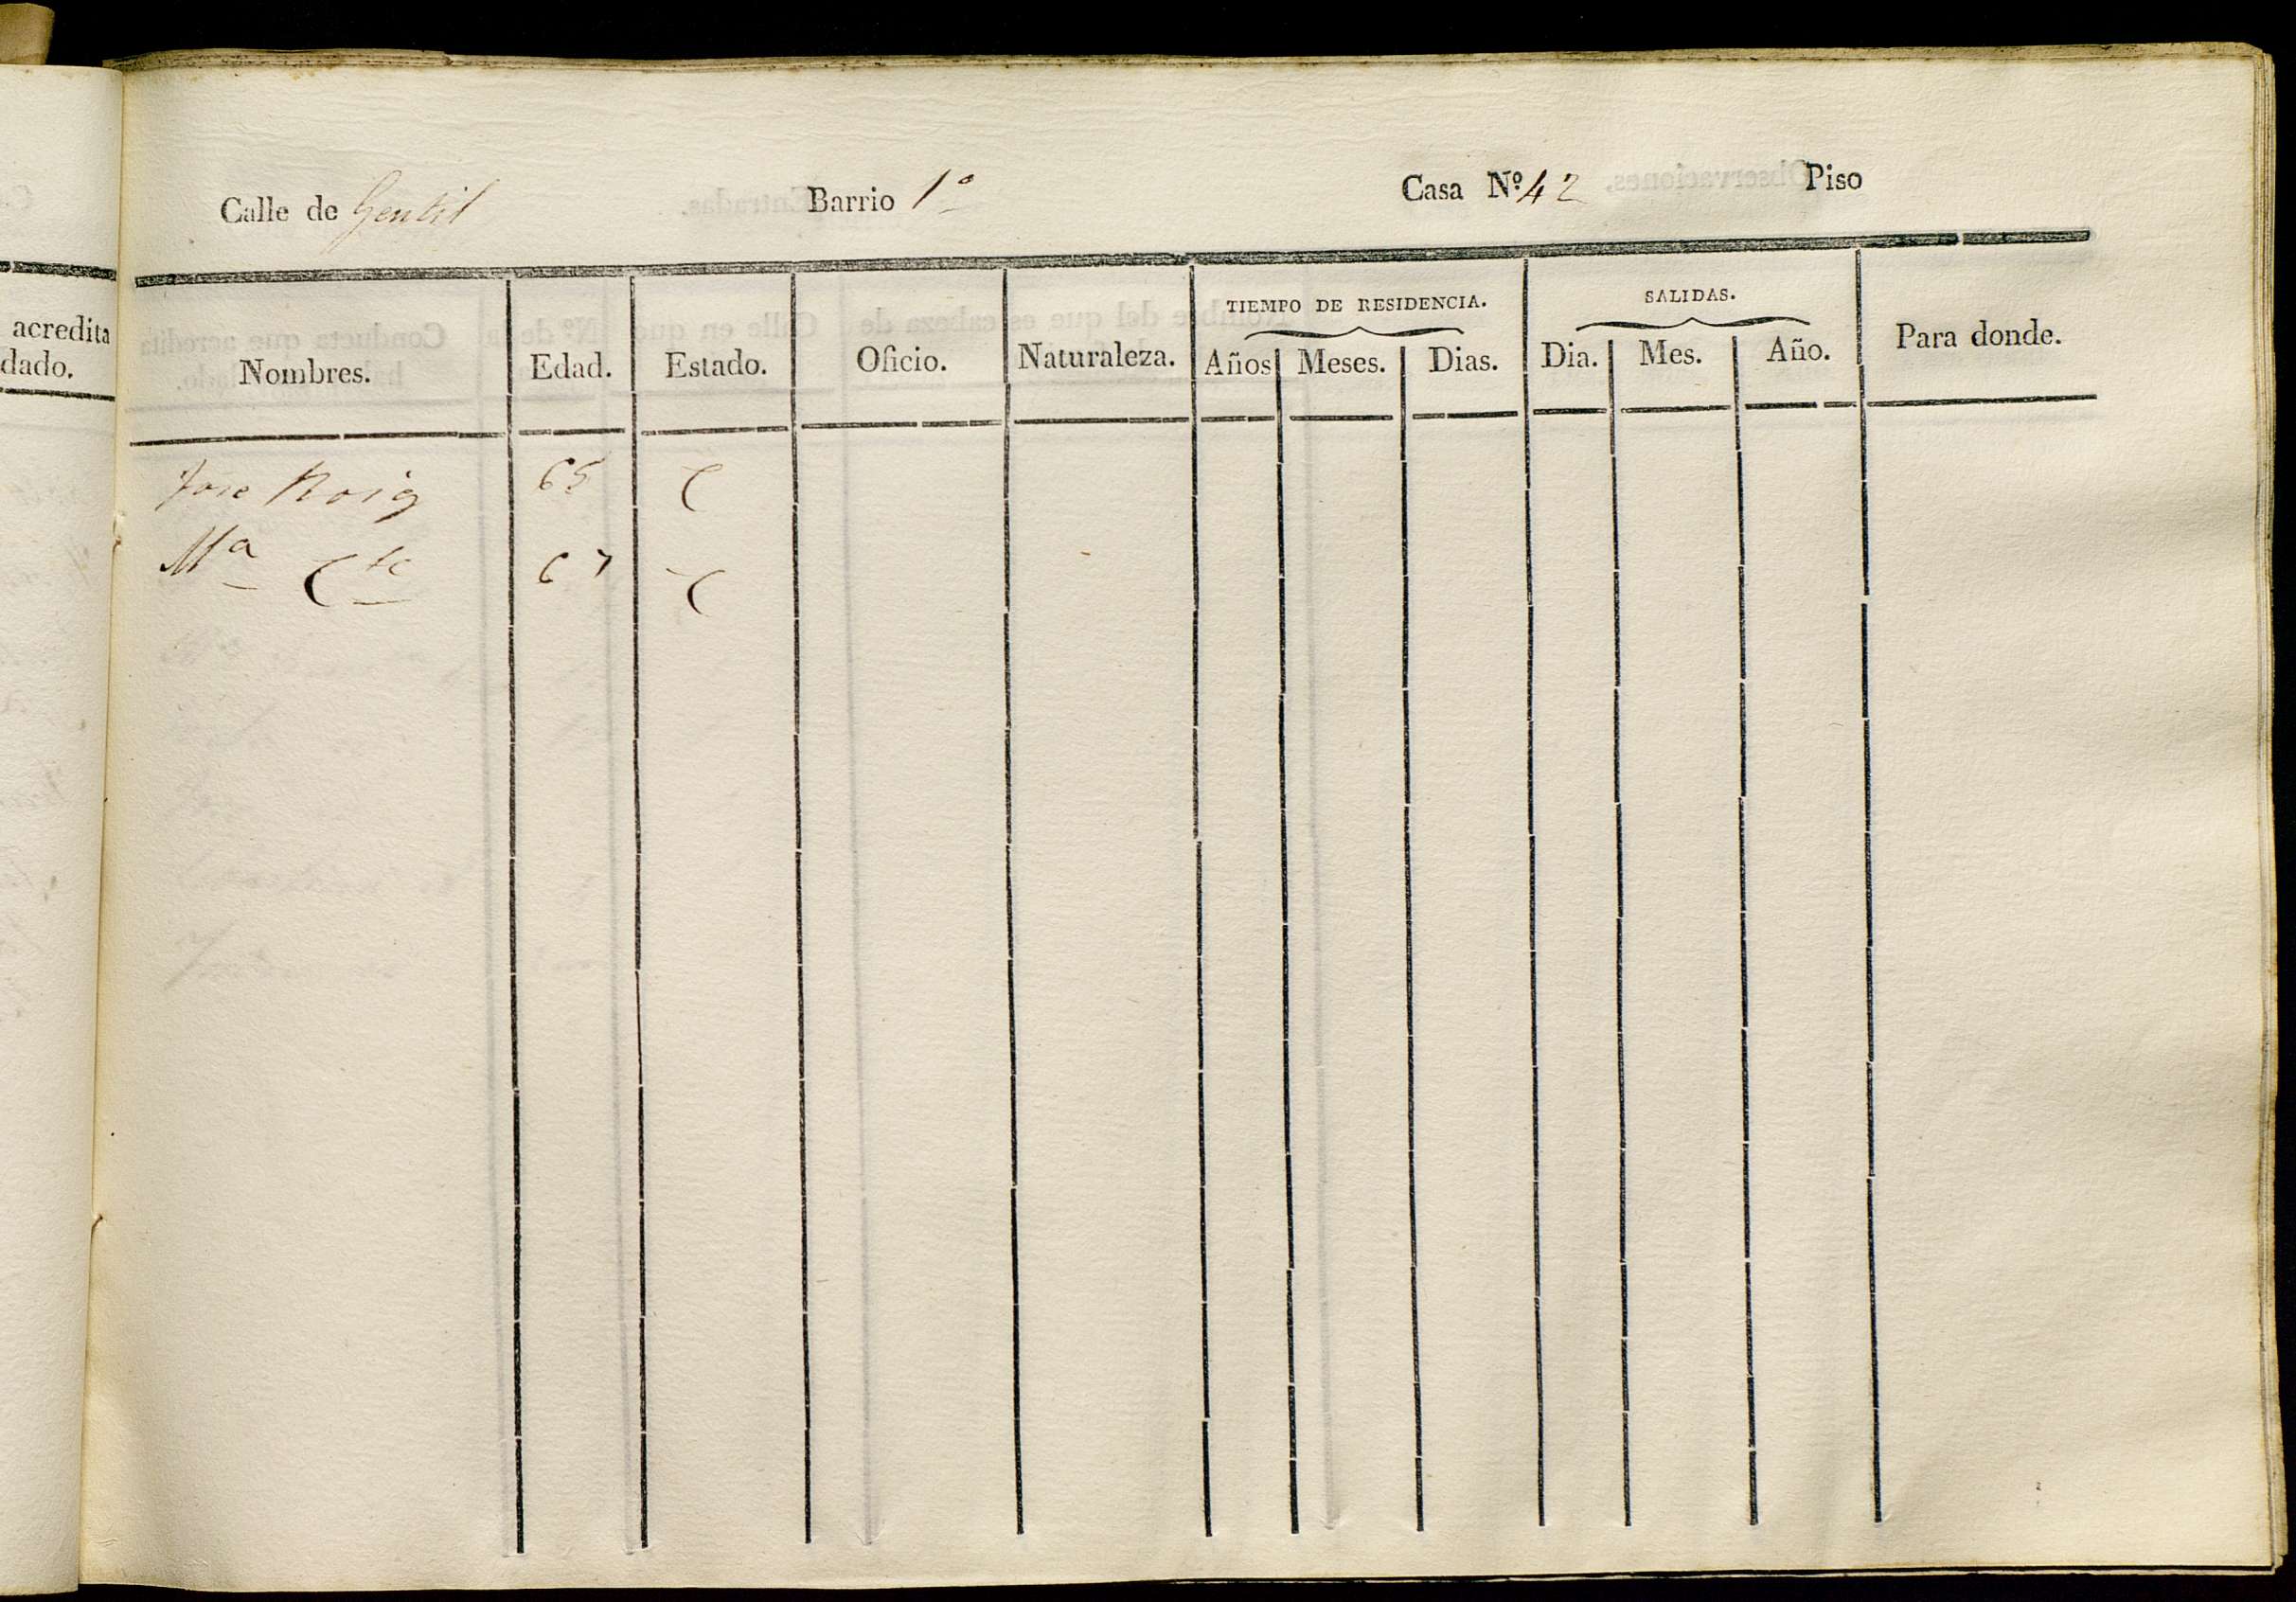 acredita
dado.
Calle de Gentil Barrio 1º Casa Nº 42 Piso
TIEMPO DE RESIDENCIA. SALIDAS.
Nombres. Edad. Estado. Oficio. Naturaleza. Años Meses. Dias. Dia. Mes. Año. Para donde.
Jose Roig 65 C
Mª 67 C